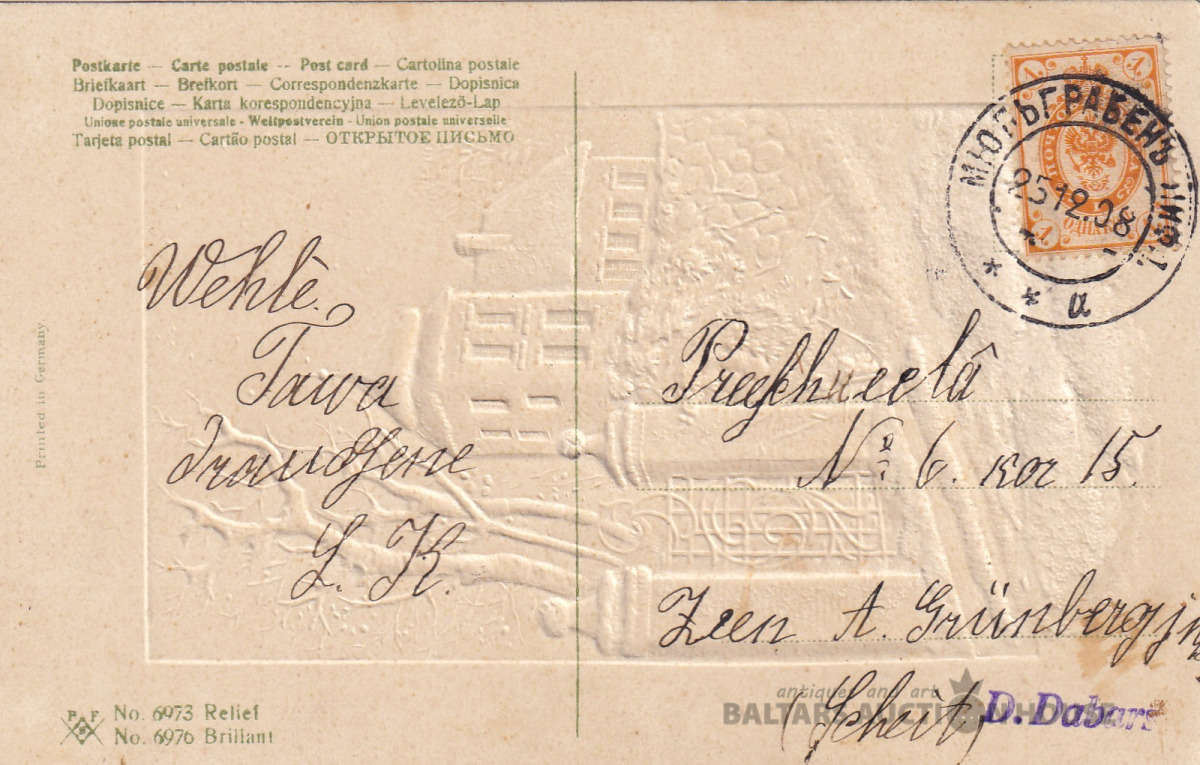 Postkarte — Carte postale — Post card — Cartolina postale
Briefkaart — Brefkort — Correspondenzkarte — Dopisnica
Dopisnice — Karta korespondencyjna — Levelező-Lap
Unione postale universale - Weltpostverein - Union postale universelle
Tarjeta postal — Cartão postal — ОТКРЫТОЕ ПИСЬМО
1 1
МЮЛЬГРАБЕНЪ ЛИФЛ.
25 12.08
1 1
a
Printed in Germany.
Wehlè.
Tawa
L. K.
№ 6. kor 15.
A. Grünberg
antiques and art
BALTARS AUCTION HOUSE
D. Dabars
P F
No. 6973 Relief
No. 6976 Brillant